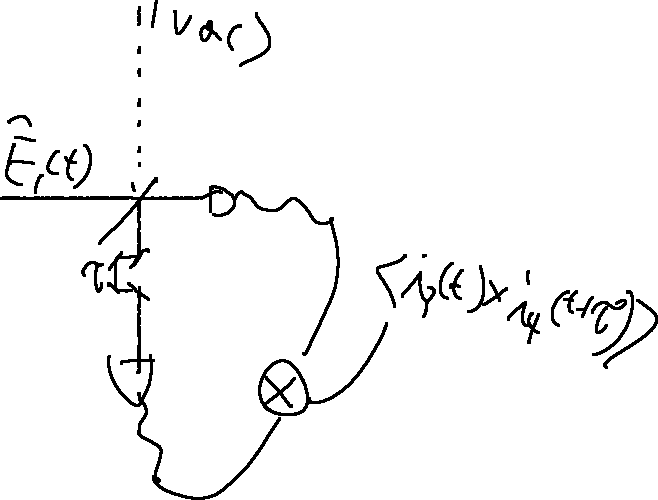 |vac⟩
Ê₁(t)
τ
⟨i₃(t) × i₄(t+τ)⟩